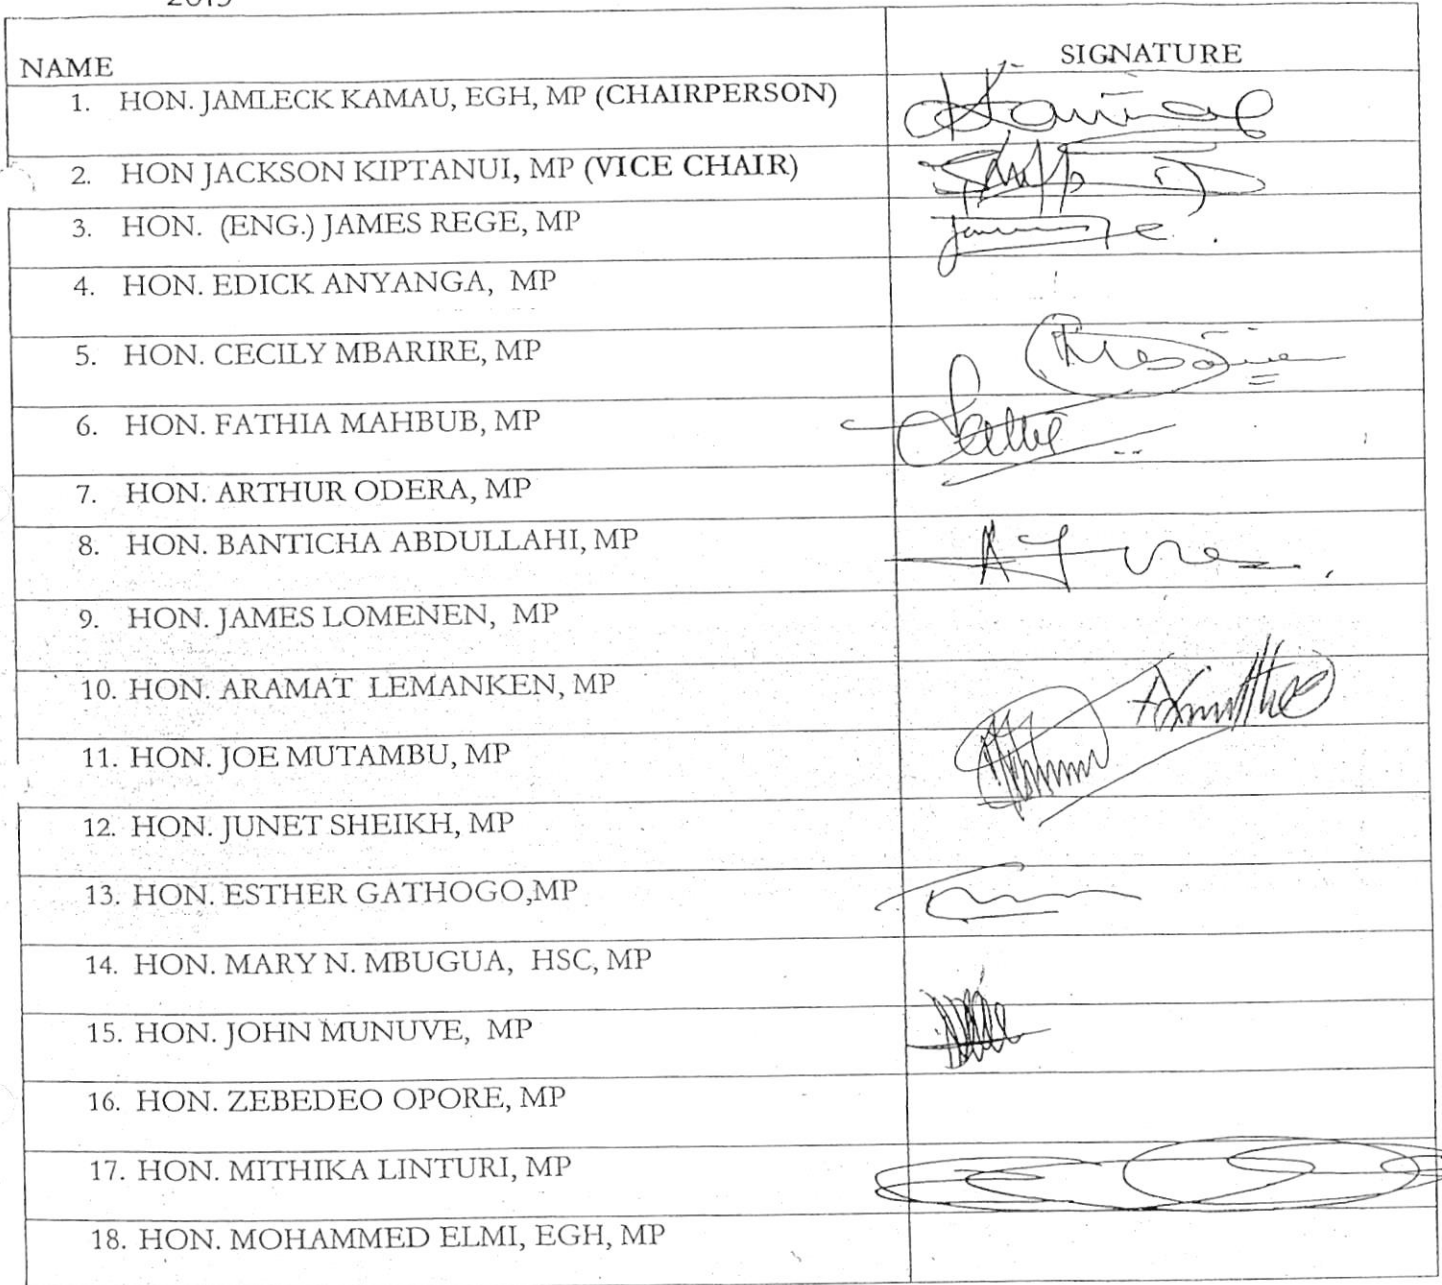 NAME
SIGNATURE
1. HON. JAMLECK KAMAU, EGH, MP (CHAIRPERSON)
2. HON JACKSON KIPTANUI, MP (VICE CHAIR)
3. HON. (ENG.) JAMES REGE, MP
4. HON. EDICK ANYANGA, MP
5. HON. CECILY MBARIRE, MP
6. HON. FATHIA MAHBUB, MP
7. HON. ARTHUR ODERA, MP
8. HON. BANTICHA ABDULLAHI, MP
9. HON. JAMES LOMENEN, MP
10. HON. ARAMAT LEMANKEN, MP
11. HON. JOE MUTAMBU, MP
12. HON. JUNET SHEIKH, MP
13. HON. ESTHER GATHOGO,MP
14. HON. MARY N. MBUGUA, HSC, MP
15. HON. JOHN MUNUVE, MP
16. HON. ZEBEDEO OPORE, MP
17. HON. MITHIKA LINTURI, MP
18. HON. MOHAMMED ELMI, EGH, MP